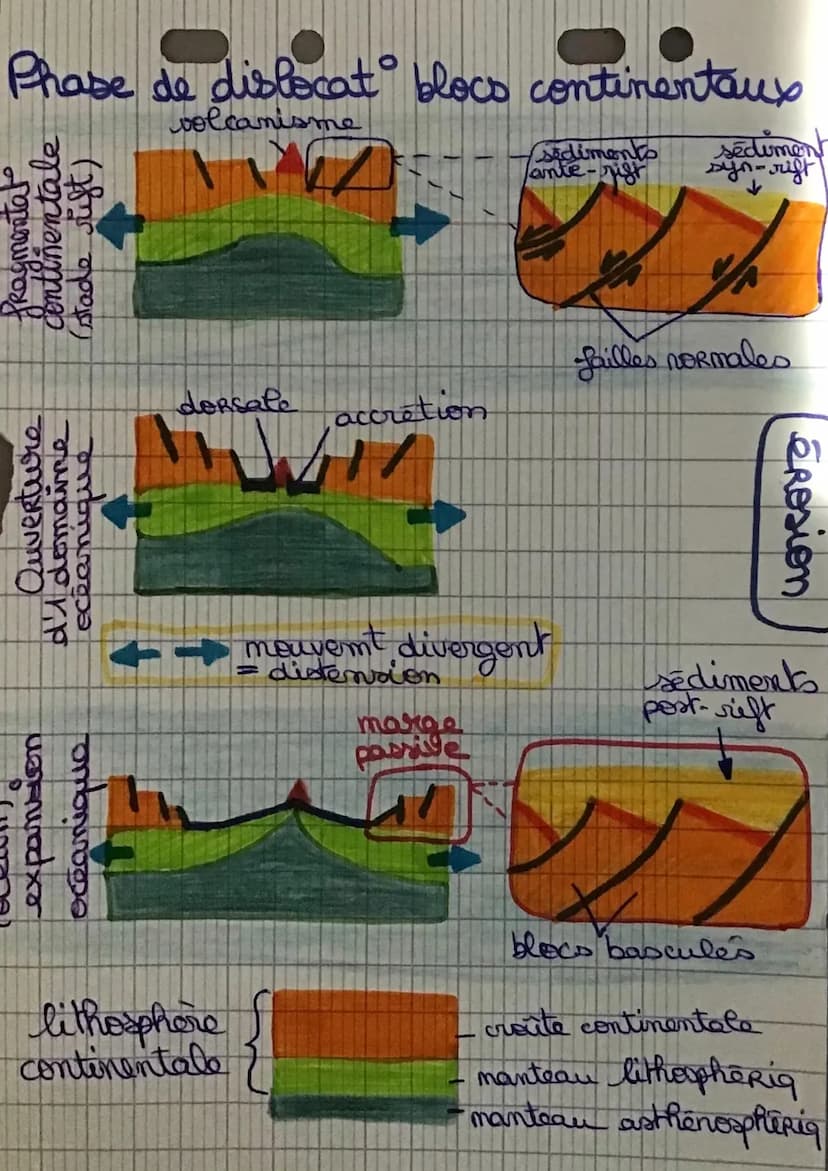 Phase de dislocat° blocs continentaux
volcanisme
fragmentat°
continentale
(stade rift)
sédiments
ante-rift
sédiment
syn-rift
failles normales
dorsale
accrétion
Ouverture
d'1 domaine
océanique
érosion
mouvemt divergent
= distension
sédiments
post-rift
marge
passive
expansion
océanique
blocs basculés
lithosphère
continentale
croûte continentale
manteau lithosphériq
manteau asthénosphériq